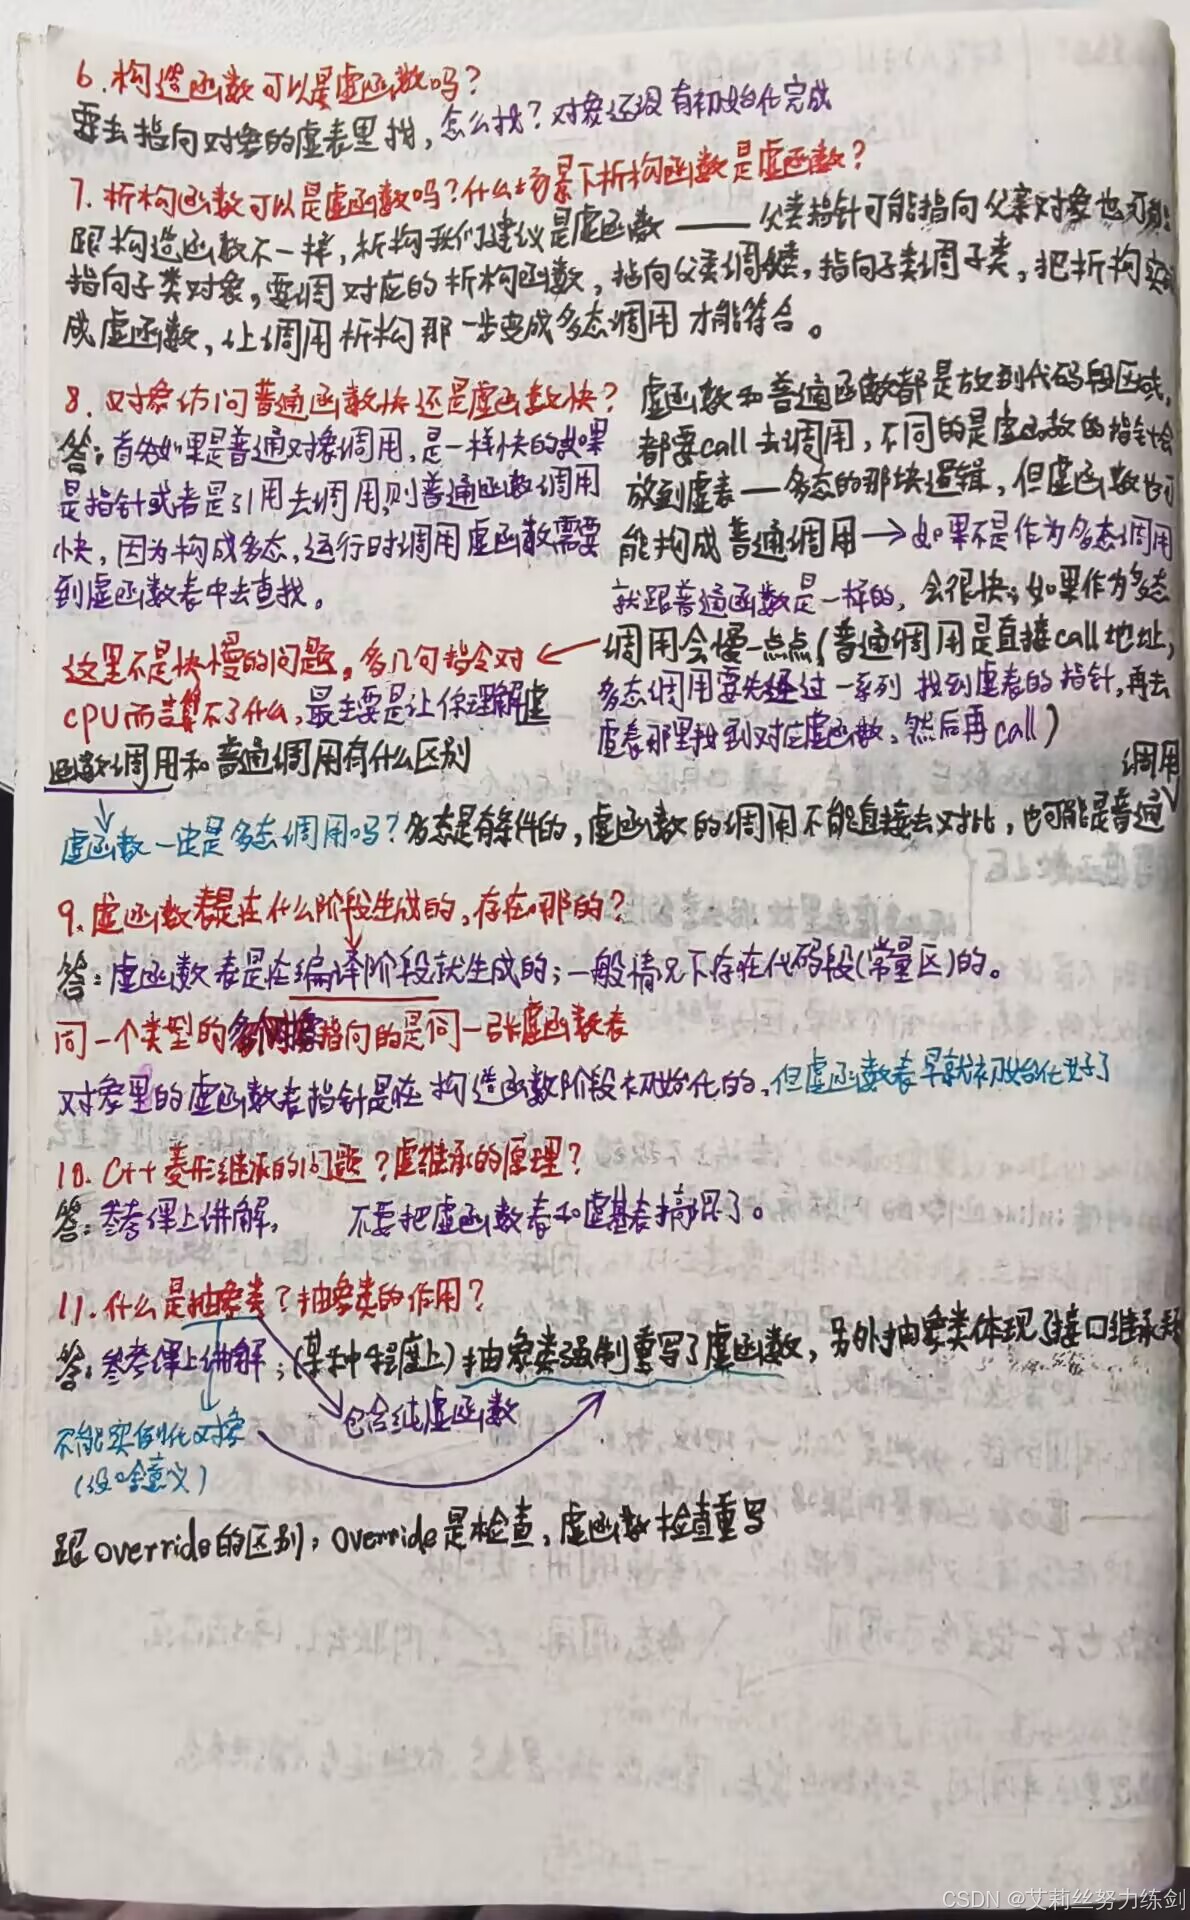 6. 构造函数可以是虚函数吗？
要去指向对象的虚表里找，怎么找？对象还没有初始化完成
7. 析构函数可以是虚函数吗？什么场景下析构函数是虚函数？
跟构造函数不一样，析构我们建议是虚函数——父类指针可能指向父亲对象也可能
指向子类对象，要调对应的析构函数，指向父类调父类，指向子类调子类，把析构实
成虚函数，让调用析构那一步变成多态调用才能符合。
8. 对象访问普通函数快还是虚函数快？
答：首先如果是普通对象调用，是一样快的如果
是指针或者是引用去调用，则普通函数调用
快，因为构成多态，运行时调用虚函数需要
到虚函数表中去查找。
虚函数和普通函数都是放到代码段区域，
都要call去调用，不同的是虚函数的指针会
放到虚表—多态的那块逻辑，但虚函数也可
能构成普通调用→如果不是作为多态调用
就跟普通函数是一样的，会很快；如果作为多态
调用会慢一点点（普通调用是直接call地址，
多态调用要先通过一系列找到虚表的指针，再去
虚表那里找到对应虚函数，然后再call）
这里不是快慢的问题。多几句指令对
CPU而言算不了什么，最主要是让你理解虚
函数调用和普通调用有什么区别
虚函数一定是多态调用吗？多态是有条件的，虚函数的调用不能直接去对比，也可能是普通
调用
9. 虚函数表是在什么阶段生成的，存在哪的？
答：虚函数表是在编译阶段就生成的；一般情况下存在代码段(常量区)的。
同一个类型的多个对象指向的是同一张虚函数表
对象里的虚函数表指针是在构造函数阶段初始化的，但虚函数表早就初始化好了
10. C++菱形继承的问题？虚继承的原理？
答：参考课上讲解， 不要把虚函数表和虚基表搞混了。
11. 什么是抽象类？抽象类的作用？
答：参考课上讲解；(某种程度上)抽象类强制重写了虚函数，另外抽象类体现了接口继承
包含纯虚函数
不能实例化对象
(没啥意义)
跟override的区别，override是检查，虚函数检查重写
CSDN @艾莉丝努力练剑